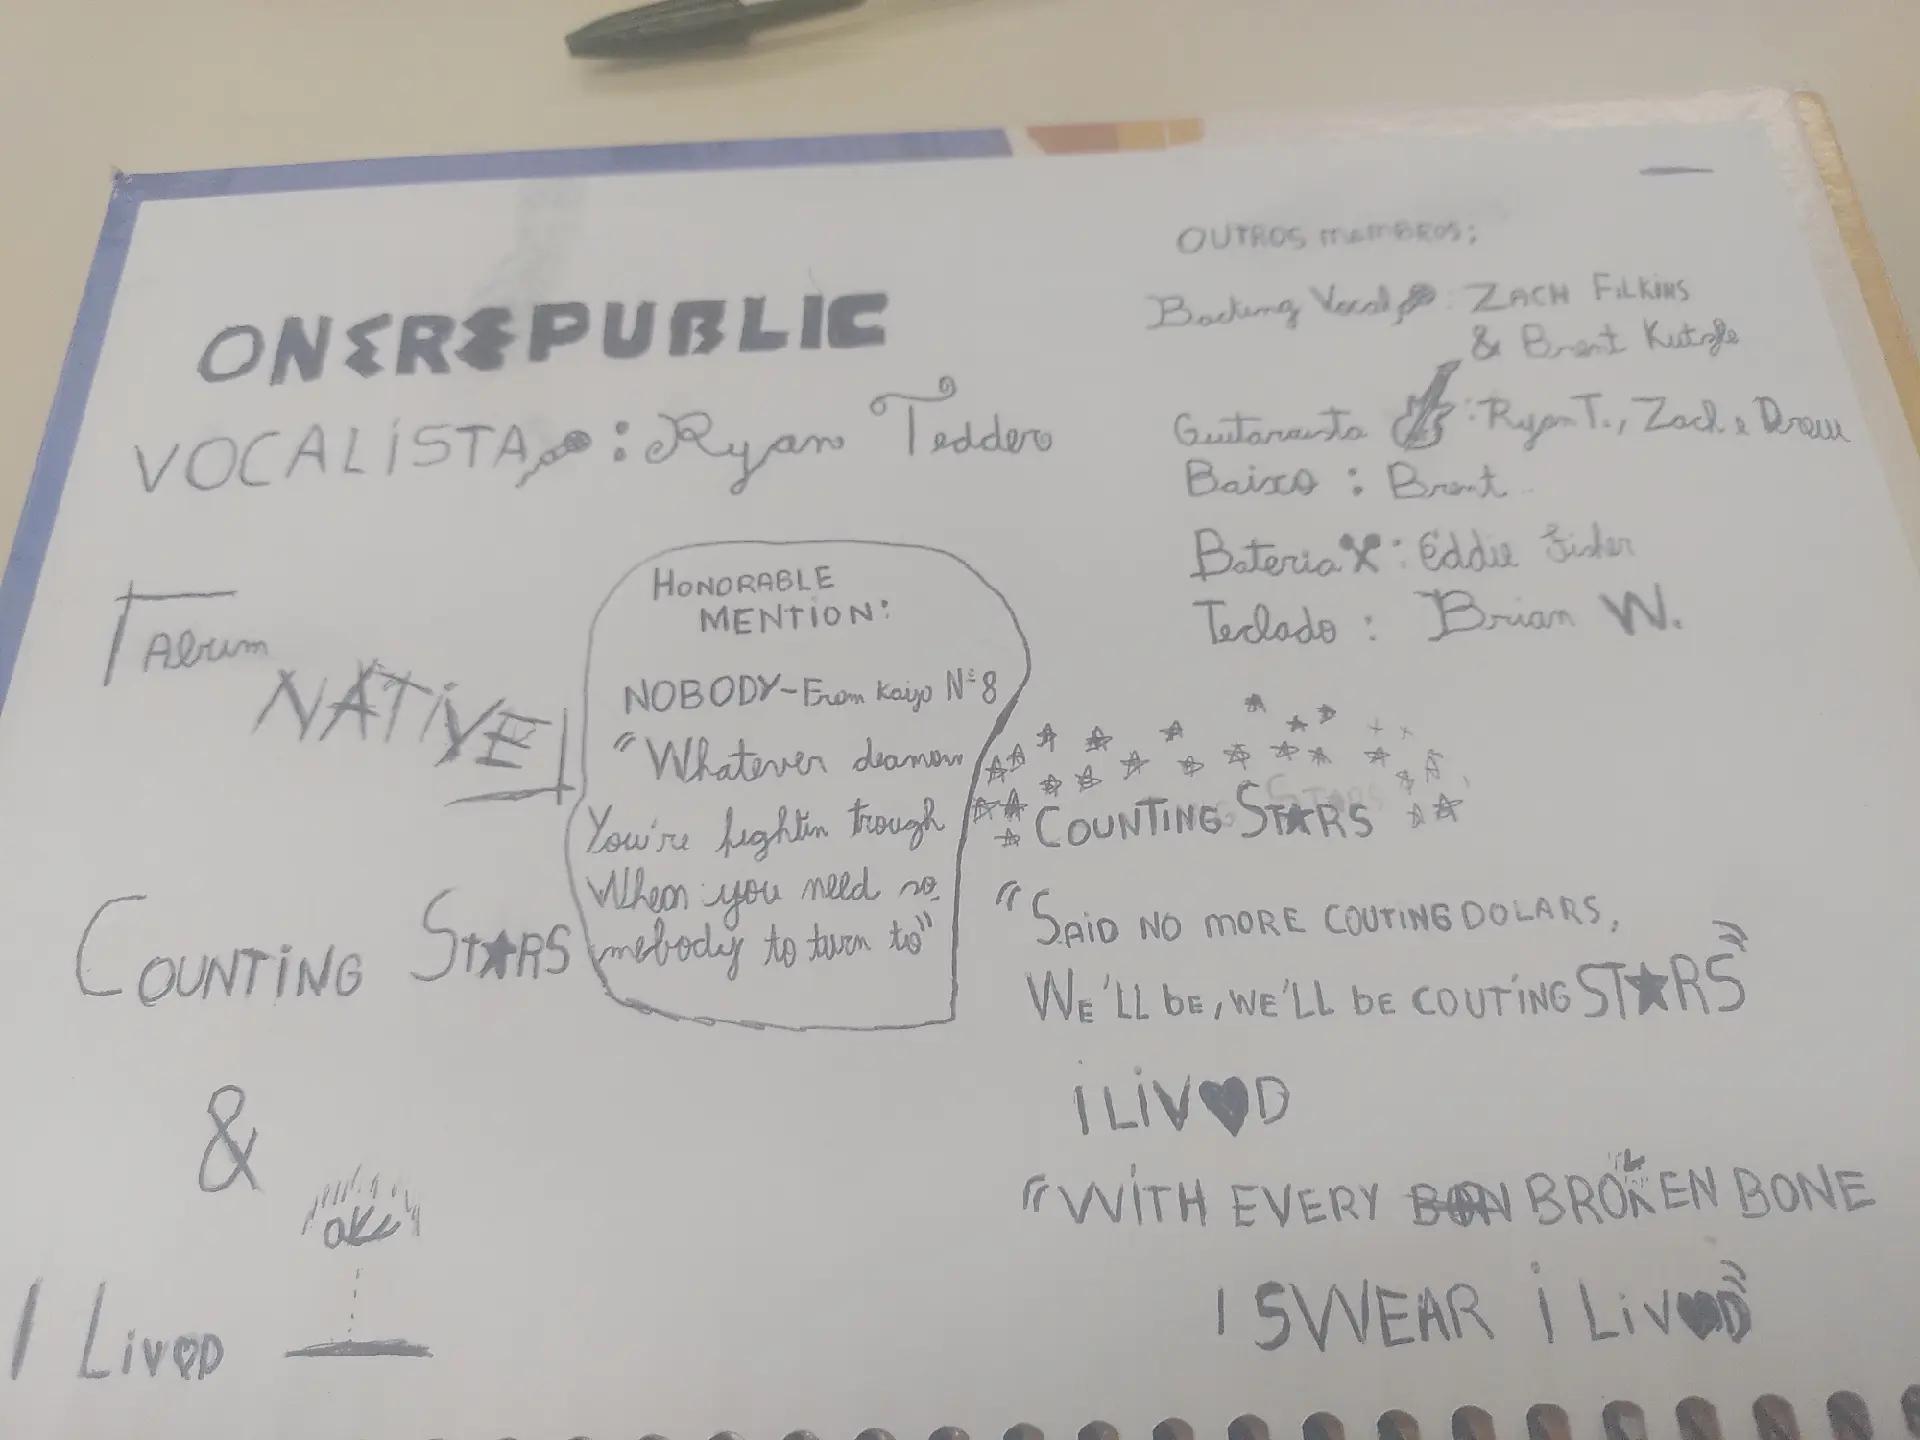 ONEREPUBLIC
VOCALISTA: Ryan Teddero
OUTROS MEMBROS:
Backing Vocal: ZACH FILKINS
& Brent Kutzle
Guitarrista: Ryan T., Zach e Drew
Baixo: Brent
Bateria: Eddie Fisher
Teclado: Brian W.
ALBUM
NATIVE
HONORABLE
MENTION:
NOBODY - From Kaijo Nº 8
"Whatever deamon
You're fightin trough
When you need so
mebody to turn to"
COUNTING STARS
&
I LIVED
COUNTING STARS
"SAID NO MORE COUTING DOLARS,
WE'LL BE, WE'LL BE COUTING STARS"
I LIV♥D
"WITH EVERY BROKEN BONE
I SWEAR I LIV♥D"